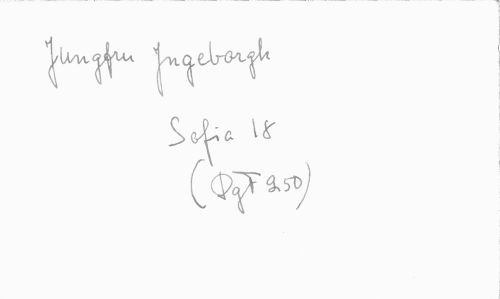 Jungfru Ingeborgh
Sofia 18
(DgF 250)